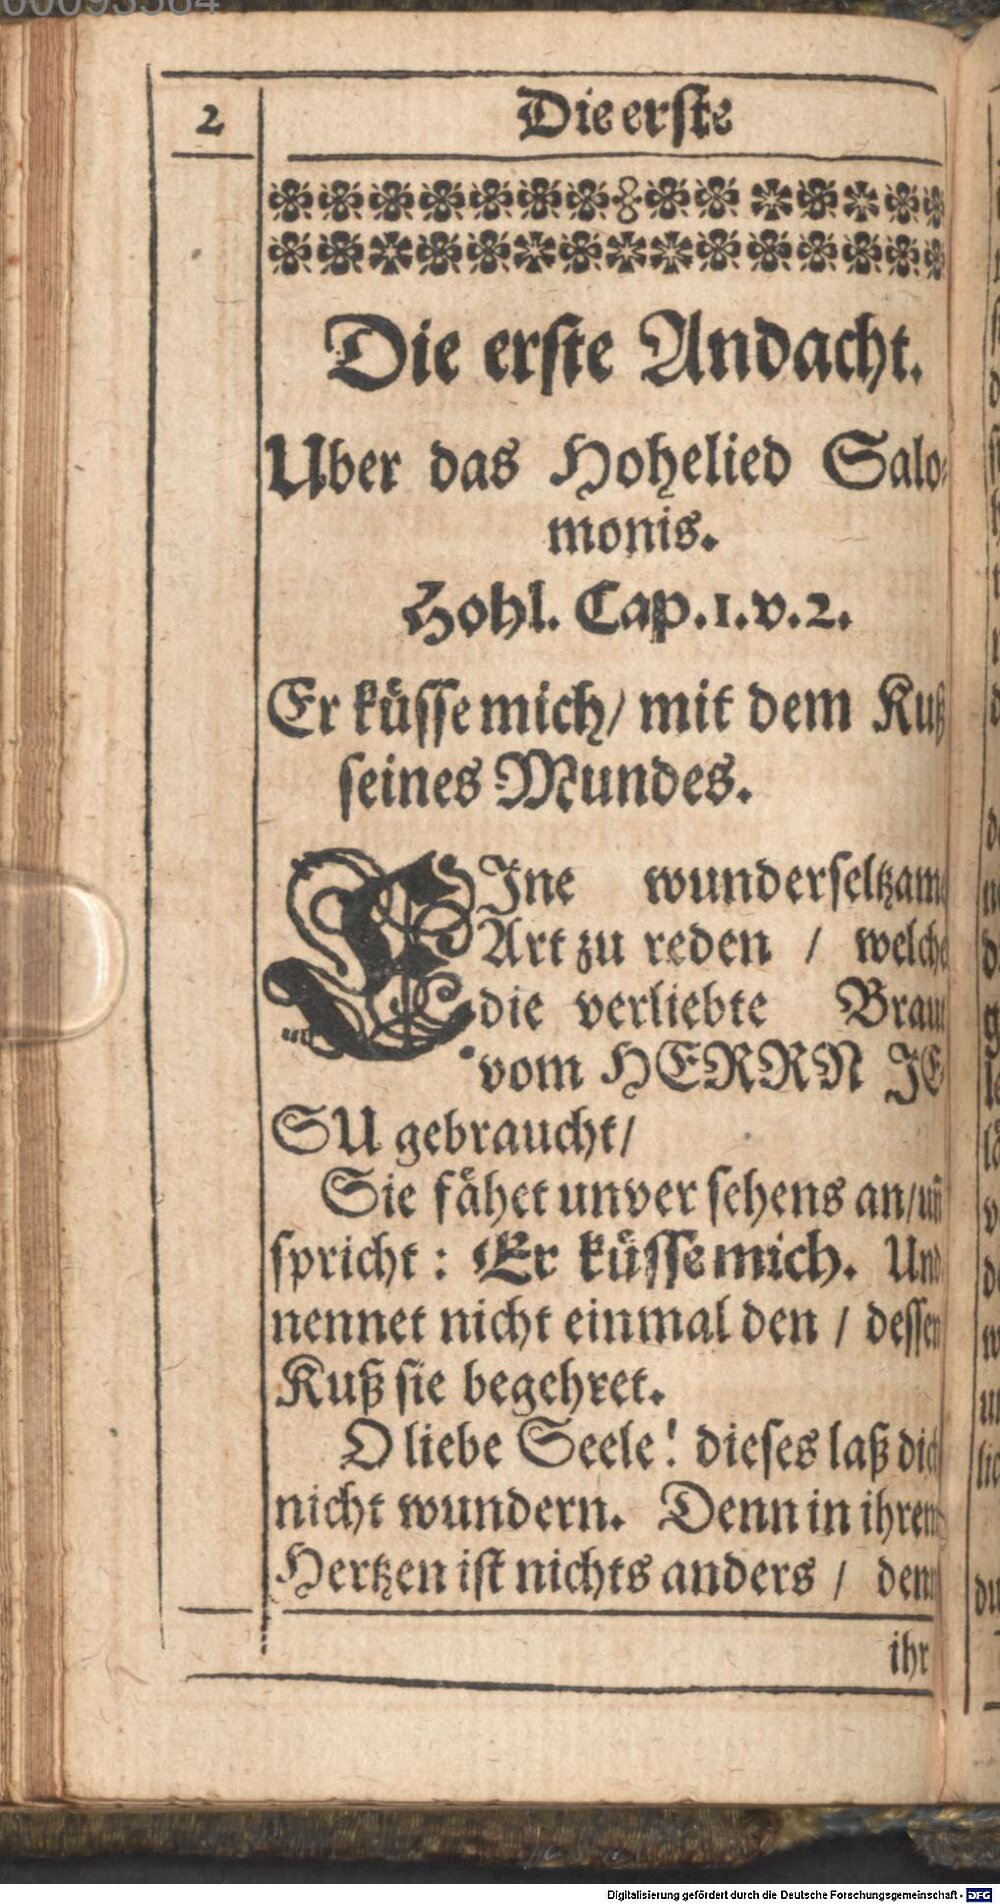 2
Die erste
Die erste Andacht.
Uber das Hohelied Salo-
monis.
Hohl. Cap. 1. v. 2.
Er küsse mich / mit dem Kuß
seines Mundes.
EIne wunderseltzame
Art zu reden / welche
die verliebte Braut
vom HERRN JE
SU gebraucht /
Sie fähet unver sehens an / uñ
spricht : Er küsse mich. Und
nennet nicht einmal den / dessen
Kuß sie begehret.
O liebe Seele! dieses laß dich
nicht wundern. Denn in ihrem
Hertzen ist nichts anders / denn
ihr
Digitalisierung gefördert durch die Deutsche Forschungsgemeinschaft - DFG